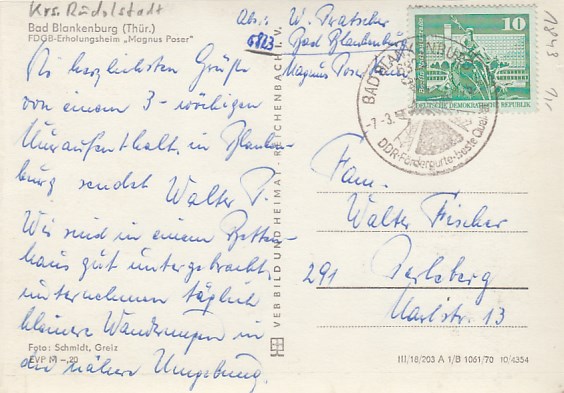 Krs. Rudolstadt
Bad Blankenburg (Thür.)
FDGB-Erholungsheim „Magnus Poser"
Abs.: W.
6823- Bad Blankenburg
Magnus Poser
Die herzlichsten Grüße
von einem 3-wöchigen
Kuraufenthalt in Blanken-
burg sendet Walter P.
Wir sind in einem Betten-
haus gut untergebracht,
unternehmen täglich
kleinere Wanderungen in
die nähere Umgebung.
Foto: Schmidt, Greiz
EVP M -,20
VEB BILD UND HEIMAT · REICHENBACH I. V.
10
DEUTSCHE DEMOKRATISCHE REPUBLIK
BAD BLANKENBURG
-7-3
DDR-Fördergurte-beste Qualität
1843
Fam.
Walter Fischer
291 Perleberg
Karlstr. 13
III/18/203 A 1/B 1061/70 10/4354